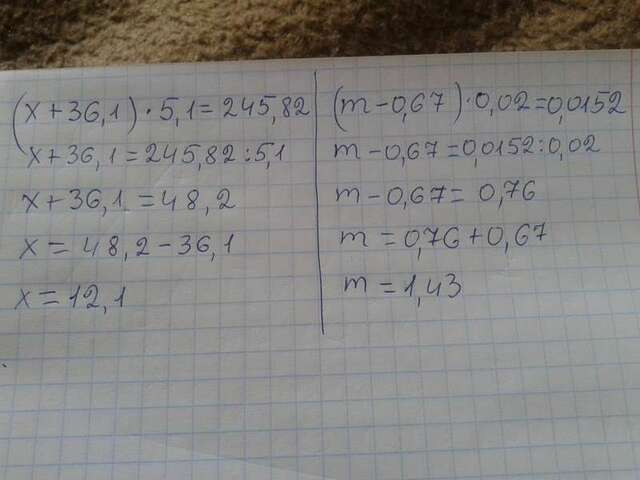 (x+36,1)·5,1=245,82
x+36,1=245,82:5,1
x+36,1=48,2
x=48,2-36,1
x=12,1
(m-0,67)·0,02=0,0152
m-0,67=0,0152:0,02
m-0,67=0,76
m=0,76+0,67
m=1,43